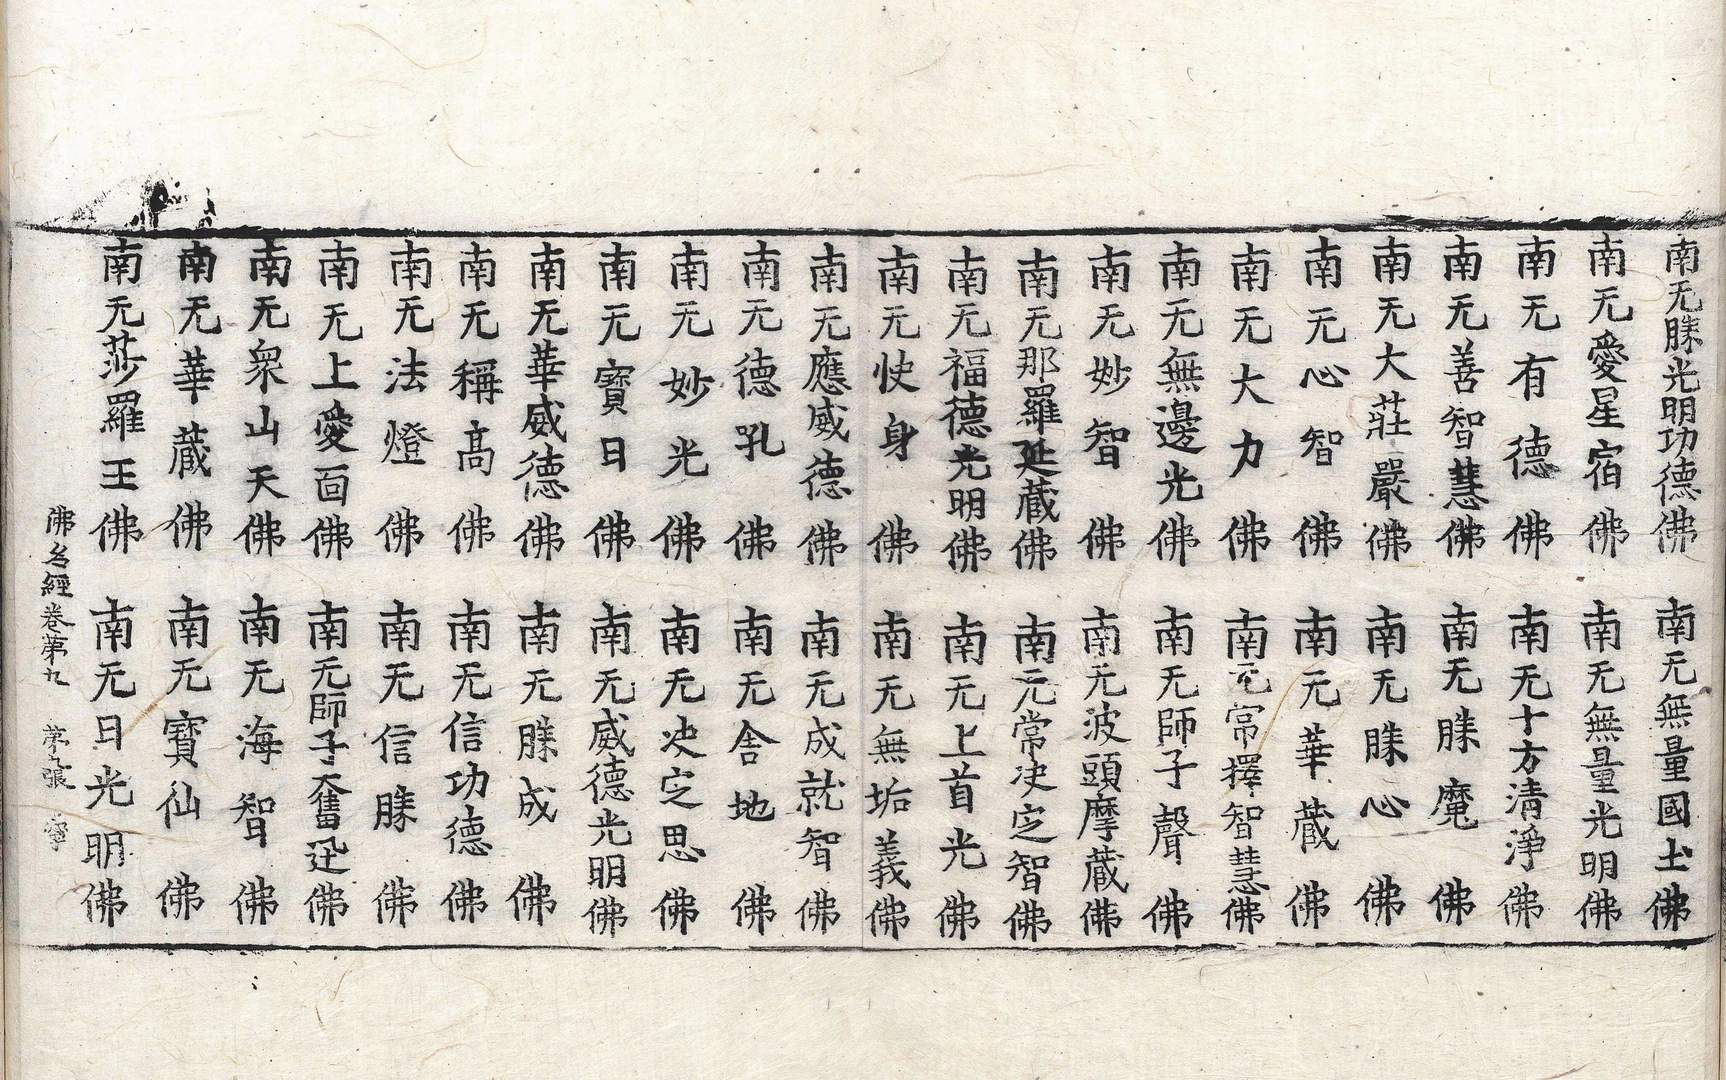 南无勝光明功德佛　南无無量國土佛
南无愛星宿佛　南无無量光明佛
南无有德佛　南无十方清淨佛
南无善智慧佛　南无勝魔佛
南无大莊嚴佛　南无勝心佛
南无心智佛　南无華藏佛
南无大力佛　南无常擇智慧佛
南无無邊光佛　南无師子聲佛
南无妙智佛　南无波頭摩藏佛
南无那羅延藏佛　南无常决定智佛
南无福德光明佛　南无上首光佛
南无快身佛　南无無垢義佛
南无應威德佛　南无成就智佛
南无德吼佛　南无舍地佛
南无妙光佛　南无决定思佛
南无寶日佛　南无威德光明佛
南无華威德佛　南无勝成佛
南无稱髙佛　南无信功德佛
南无法燈佛　南无信勝佛
南无上愛面佛　南无師子奮迅佛
南无衆山天佛　南无海智佛
南无華藏佛　南无寶仙佛
南无莎羅王佛　南无日光明佛
佛名經卷第九　張